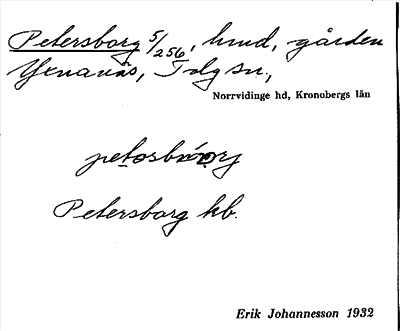 Petersborg 5/256, hmd, gården
Yxnanäs, Tolg sn,
Norrvidinge hd, Kronobergs län
Petersborg kb.
Erik Johannesson 1932